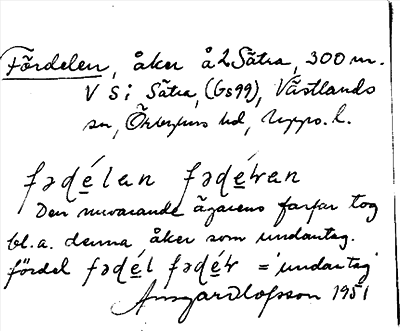 Fördelen, åker å 2 Sätra, 300 m.
V S i Sätra, (Gs99), Västlands
sn, Örbyhus hd, Upps. l.
fǝdélan fǝdéran
Den nuvarande ägarens farfar tog
bl.a. denna åker som undantag.
fördel fǝdél fǝdér = 'undantag'
Ansgar Olofsson 1951